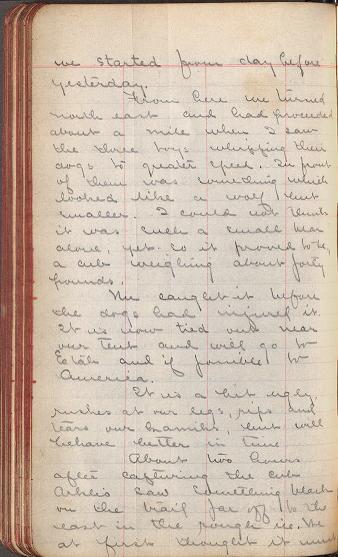 we started from day before
yesterday.
From here we turned
north east and had proceeded
about a mile when I saw
the three boys whipping their
dogs to greater speed. In front
of them was something which
looked like a wolf, but
smaller. I could not think
it was such a small bear
alone, yet so it proved to be,
a cub weighing about forty
pounds.
We caught it before
the dogs had injured it.
It is now tied out near
our tent and will go to
Etah and if possible to
America.
It is a bit ugly,
rushes at our legs, rips and
tears our kamiks, but will
behave better in time.
About two hours
after capturing the cub
saw something black
on the trail far off to the
east in the rough ice. We
at first thought it must